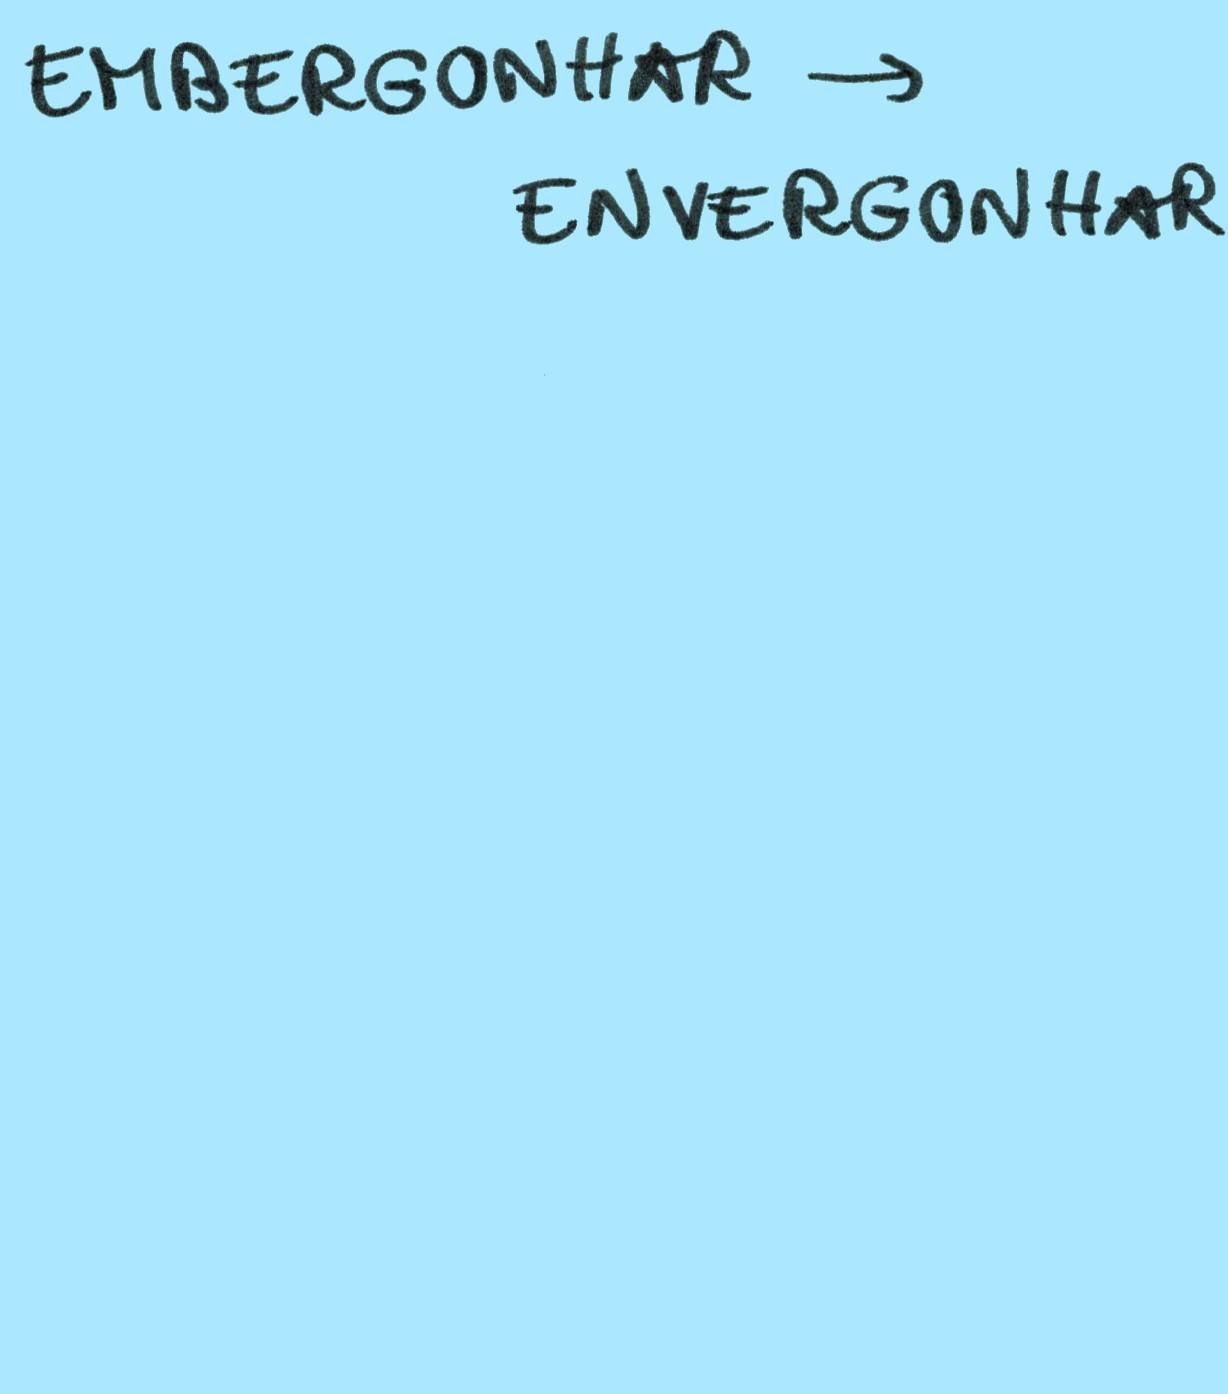 EMBERGONHAR →
ENVERGONHAR